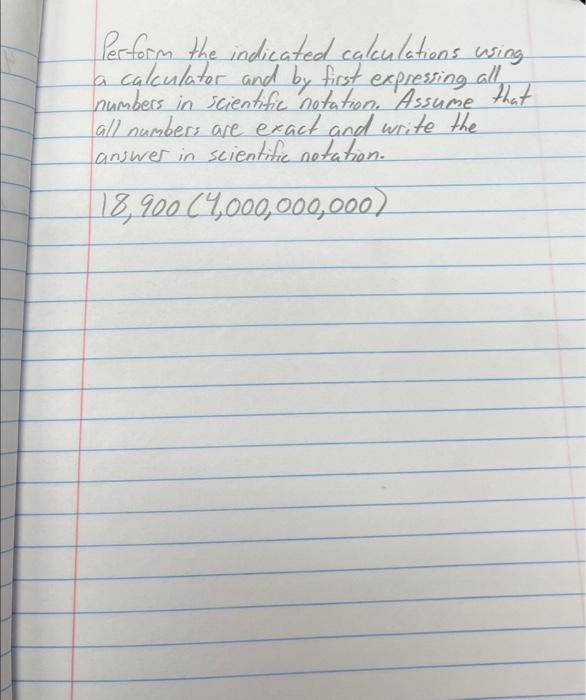 Perform the indicated calculations using
a calculator and by first expressing all
numbers in scientific notation. Assume that
all numbers are exact and write the
answer in scientific notation.
18,900 (4,000,000,000)